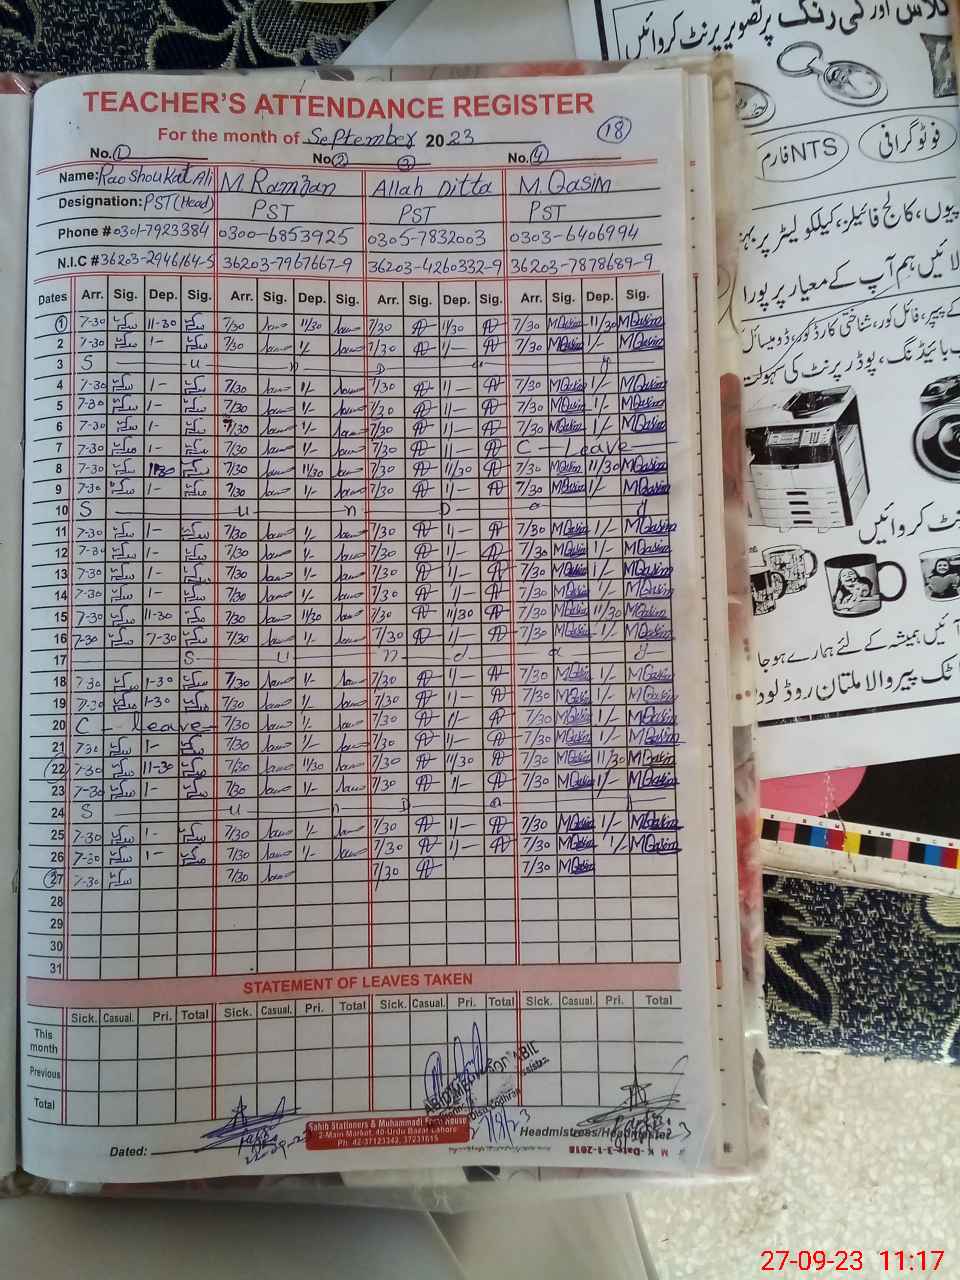 TEACHER'S ATTENDANCE REGISTER
For the month of September 2023 18
No. 1 No 2 3 No. 4
Name: Rao Shoukat Ali M. Ramzan Allah Ditta M. Qasim
Designation: PST (Head) PST PST PST
Phone # 0301-7923384 0300-6853925 0305-7832003 0303-6406994
N.I.C # 36203-2946164-5 36203-7967667-9 36203-4260332-9 36203-7878689-9
Dates Arr. Sig. Dep. Sig. Arr. Sig. Dep. Sig. Arr. Sig. Dep. Sig. Arr. Sig. Dep. Sig.
1 7-30 11-30 7/30 11/30 7/30 11/30 7/30 MQasim 11/30 MQasim
2 7-30 1- 7/30 1/- 7/30 1/- 7/30 MQasim 1/- MQasim
3 S u n D a y
4 7-30 1- 7/30 1/- 7/30 1/- 7/30 MQasim 1/- MQasim
5 7-30 1- 7/30 1/- 7/30 1/- 7/30 MQasim 1/- MQasim
6 7-30 1- 7/30 1/- 7/30 1/- 7/30 MQasim 1/- MQasim
7 7-30 1- 7/30 1/- 7/30 1/- C - Leave
8 7-30 11-30 7/30 11/30 7/30 11/30 7/30 MQasim 11/30 MQasim
9 7-30 1- 7/30 1/- 7/30 1/- 7/30 MQasim 1/- MQasim
10 S u n D a y
11 7-30 1- 7/30 1/- 7/30 1/- 7/30 MQasim 1/- MQasim
12 7-30 1- 7/30 1/- 7/30 1/- 7/30 MQasim 1/- MQasim
13 7-30 1- 7/30 1/- 7/30 1/- 7/30 MQasim 1/- MQasim
14 7-30 1- 7/30 1/- 7/30 1/- 7/30 MQasim 1/- MQasim
15 7-30 11-30 7/30 11/30 7/30 11/30 7/30 MQasim 11/30 MQasim
16 7-30 7-30 7/30 1/- 7/30 1/- 7/30 MQasim 1/- MQasim
17 S u n d a y
18 7-30 1-30 7/30 1/- 7/30 1/- 7/30 MQasim 1/- MQasim
19 7-30 1-30 7/30 1/- 7/30 1/- 7/30 MQasim 1/- MQasim
20 C - leave- 7/30 1/- 7/30 1/- 7/30 MQasim 1/- MQasim
21 7-30 1- 7/30 1/- 7/30 1/- 7/30 MQasim 1/- MQasim
22 7-30 11-30 7/30 11/30 7/30 11/30 7/30 MQasim 11/30 MQasim
23 7-30 7/30 1/- 7/30 1/- 7/30 MQasim 1/- MQasim
24 S u n D a
25 7-30 1- 7/30 1/- 7/30 1/- 7/30 MQasim 1/- MQasim
26 7-30 1- 7/30 1/- 7/30 1/- 7/30 MQasim 1/- MQasim
27 7-30 7/30 7/30 7/30 MQasim
28
29
30
31
STATEMENT OF LEAVES TAKEN
Sick. Casual. Pri. Total Sick. Casual. Pri. Total Sick. Casual. Pri. Total Sick. Casual. Pri. Total
This month
Previous
Total
Sahib Stationers & Muhammadi House
2-Main Market, 40-Urdu Bazar Lahore
Ph: 42-37123342, 37231615
Dated: Headmistress/
M K - Date-3-1-2018
کلاس اور کی رنگ پر تصویر پرنٹ کروائیں
NTS فارم
فوٹو گرافی
کالج فائیلز، کیلکولیٹر پر
لائیں ہم آپ کے معیار پر پورا
کے پیپر، فائل کور، شناختی کارڈ کور، ڈومیسائل
بائیڈنگ، پوڈر پرنٹ کی سہولت
کروائیں
آئیں ہمیشہ کے لئے ہمارے ہوجا
ٹک پیر والا ملتان روڈ لود
27-09-23 11:17